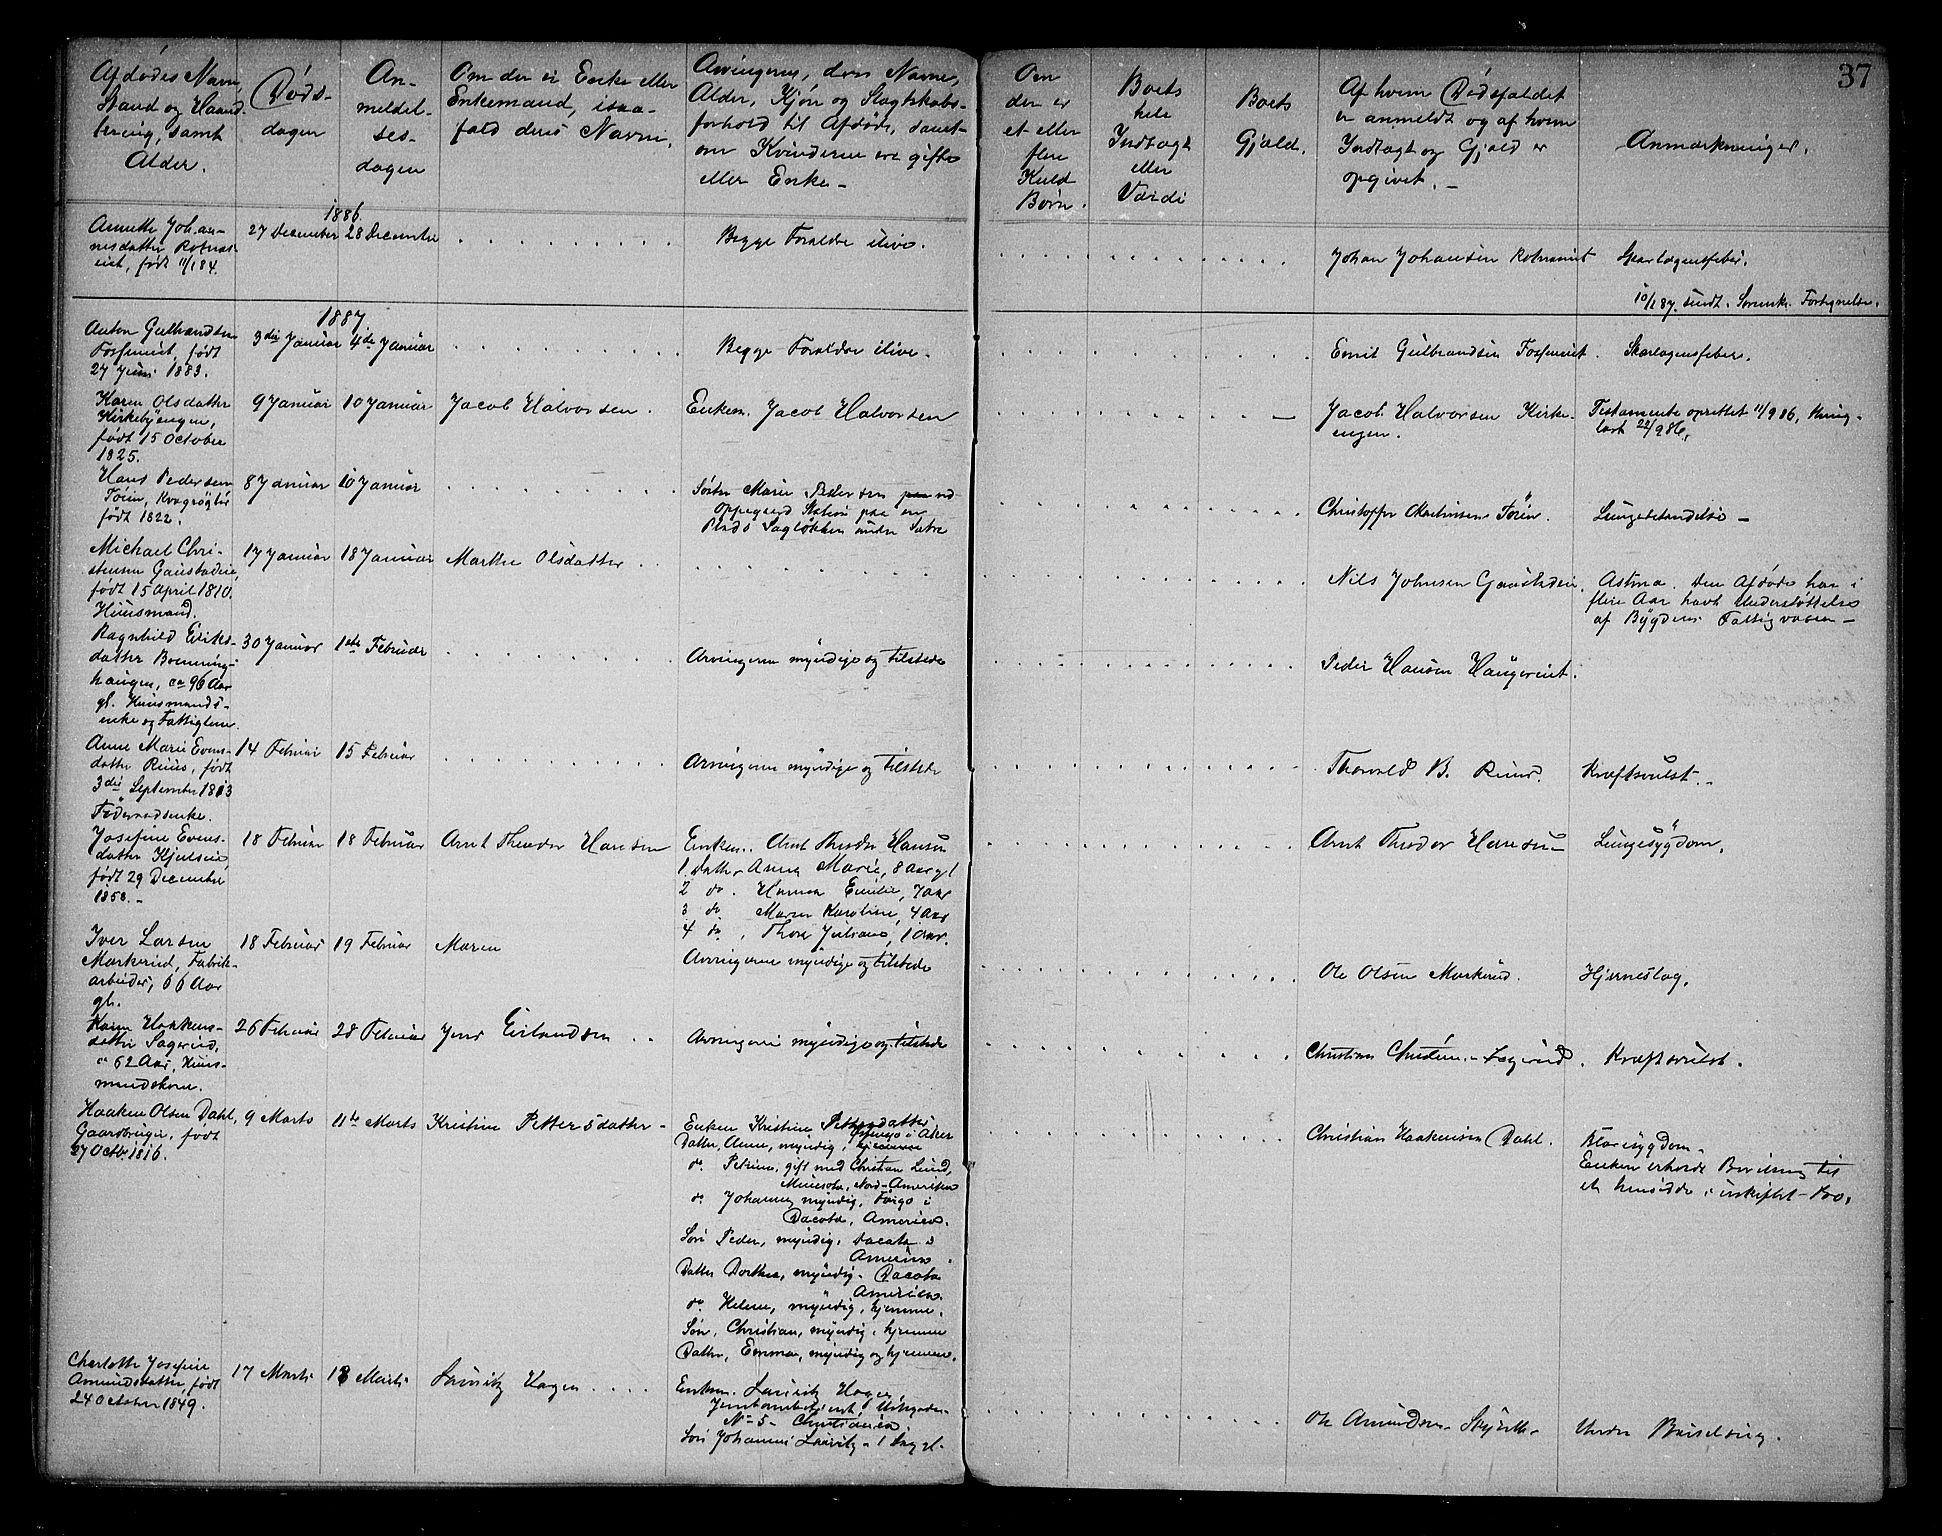 37
Afdødes Navn,
Stand og Haand-
tering, samt
Alder.
Døds-
dagen
An-
meldel-
ses-
dagen
Om der er Enke eller
Enkemand, isaa-
fald deres Navn.
Arvingerne, deres Navne,
Alder, Kjøn og Slægtskabs-
forhold til Afdøde, samt
om Kvinderne ere gifte
eller Enke –
Om
der er
et eller
flere
Kuld
Børn.
Boets
hele
Indtægt
eller
Værdi
Boets
Gjæld.
Af hvem Dødsfaldet
er anmeldt og af hvem
Indtægt og Gjæld er
opgivet. –
Anmærkninger.
1886.
Annette Johan-
nesdatter
født 11/1 84.
27 December
28 December
Begge Forældre ilive.
Johan Johansen
Skarlagensfeber.
10/1 87. sendt. Fortegnelse.
1887
Anton Gulbrandsen
Fosserud, født
27 Juni 1883.
3die Januar
4de Januar
Begge Forældre ilive.
Emil Gulbrandsen Fosserud.
Skarlagensfeber.
Karen Olsdatter
Kirkebyengen,
født 15 October
1825.
9 Januar
10 Januar
Jacob Halvorsen.
Enkem. Jacob Halvorsen
Jacob Halvorsen Kirke-
engen.
Testamente oprettet 11/9 86, thing-
læst 22/9 86.
Hans Pedersen
født 1822.
8 Januar
10 Januar
Søster Marie Pedersen ved
Oppegaard Station paa en
Plads Sagløkken under Sætre
Christoffer Martinsen
Lungebetændelse –
Michael Chri-
stensen Gaustadeie,
født 15 April 1810.
Huusmand.
17 Januar
18 Januar
Marthe Olsdatter
Nils Johnsen Gaustadeie.
Astma. Den Afdøde har i
flere Aar havt Understøttelse
af Bygdens Fattigvæsen –
Ragnhild Eriks-
datter
haugen, ca 96 Aar
gl. Huusmands-
enke og Fattiglem.
30 Januar
1ste Februar
Arvingerne myndige og tilstede
Peder Hansen
Anne Marie Evens-
datter Ruus, født
3die September 1813
Føderaadsenke.
14 Februar
15 Februar
Arvingerne myndige og tilstede
Thorvald B. Ruus.
Kræftsvulst. –
Josefine Evens-
datter
født 29 December
1850. –
18 Februar
18 Februar
Arnt Theodor Hansen
Enkem. Arnt Theodor Hansen
1. Datter Anna Marie, 8 Aar gl
2 do. Hanna Emilie, 7 Aar
3 do. Maren Karoline, 4 Aar
4 do. Thora Juliane, 1 Aar.
Arnt Theodor Hansen –
Lungesygdom.
Iver Larsen
Mærkerud, Fabrik-
arbeider, 66 Aar
gl.
18 Februar
19 Februar
Maren
Arvingerne myndige og tilstede
Ole Olsen Mærkerud.
Hjerneslag.
Karen Haakens-
datter Sagerud,
ca 62 Aar, Huus-
mandskone.
26 Februar
28 Februar
Jens Erlandsen
Arvingerne myndige og tilstede
Christian Sagerud.
Kræftsvulst.
Haaken Olsen Dahl,
Gaardbruger, født
27 Octb. 1816.
9 Marts
11te Marts
Kristine Pettersdatter –
Enken Kristine Pettersdatter
Datter, Anne, myndig,
i Aker
do. Petrine, gift med Christian Lund,
Minesota, Nord-Amerika
do Johanne, myndig, Fargo i
Dacota, America.
Søn Peder, myndig, Dacota i
America.
Datter Dorthea, myndig – Dacota
America.
do. Helene, myndig, hjemme.
Søn, Christian, myndig, hjemme
Datter, Emma, myndig og hjemme.
Christian Haakensen Dahl.
Enken erholdt Bevilling til
at hensidde i uskiftet Bo.
Charlotte Josefine
Amundsdatter, født
24 October 1849.
17 Marts
18 Marts
Lauritz Hagen
Enkem. Lauritz Hagen,
No 5 – Christiania
Søn Johannes Lauritz – 1 Dag gl.
Ole Amundsen
Under Barselseng.